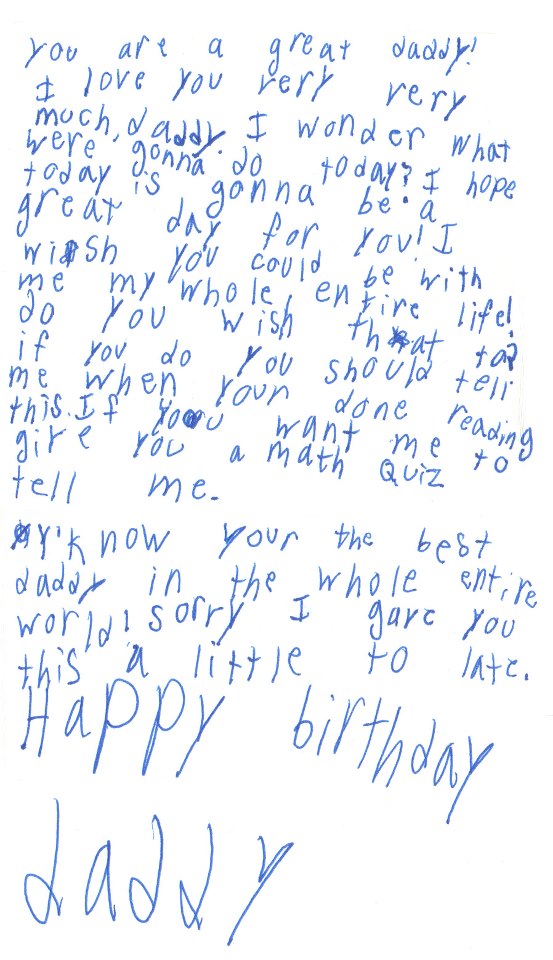 you are a great daddy!
I love you very very
much, daddy. I wonder what
were gonna do today? I hope
today is gonna be a
great day for you! I
wish you could be with
me my whole, entire life!
do you wish that to?
if you do you should tell
me when your done reading
this. If you want me to
give you a math Quiz
tell me.
y'know your the best
daddy in the whole entire
world! sorry I gave you
this a little to late.
Happy birthday
daddy